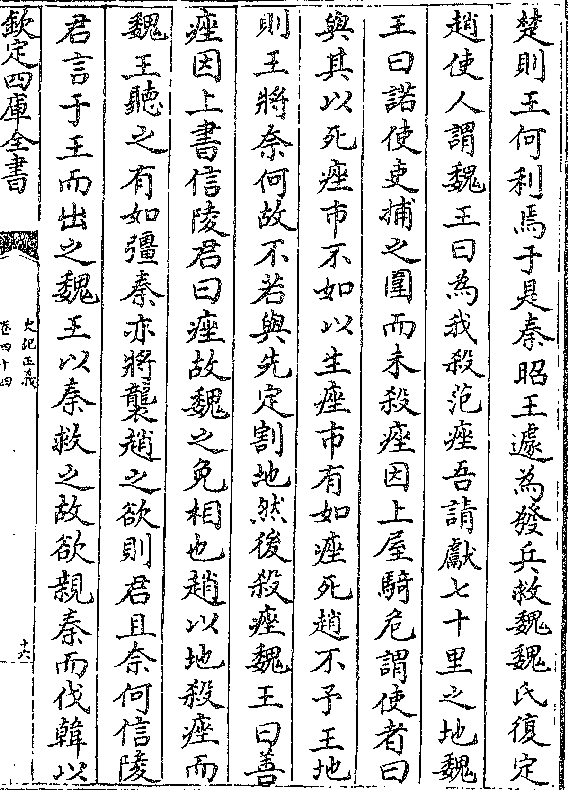 楚則王何利焉于是秦昭王遽為發兵救魏魏氏復定
趙使人謂魏王曰為我殺范痤吾請獻七十里之地魏
王曰諾使吏捕之圍而未殺痤因上屋騎危謂使者曰
與其以死痤市不如以生痤市有如痤死趙不予王地
則王將奈何故不若與先定割地然後殺痤魏王曰善
痤因上書信陵君曰痤故魏之免相也趙以地殺痤而
魏王聽之有如彊秦亦將襲趙之欲則君且奈何信陵
君言于王而出之魏王以秦救之故欲親秦而伐韓以
欽定四庫全書
史記正義
卷四十四
十六